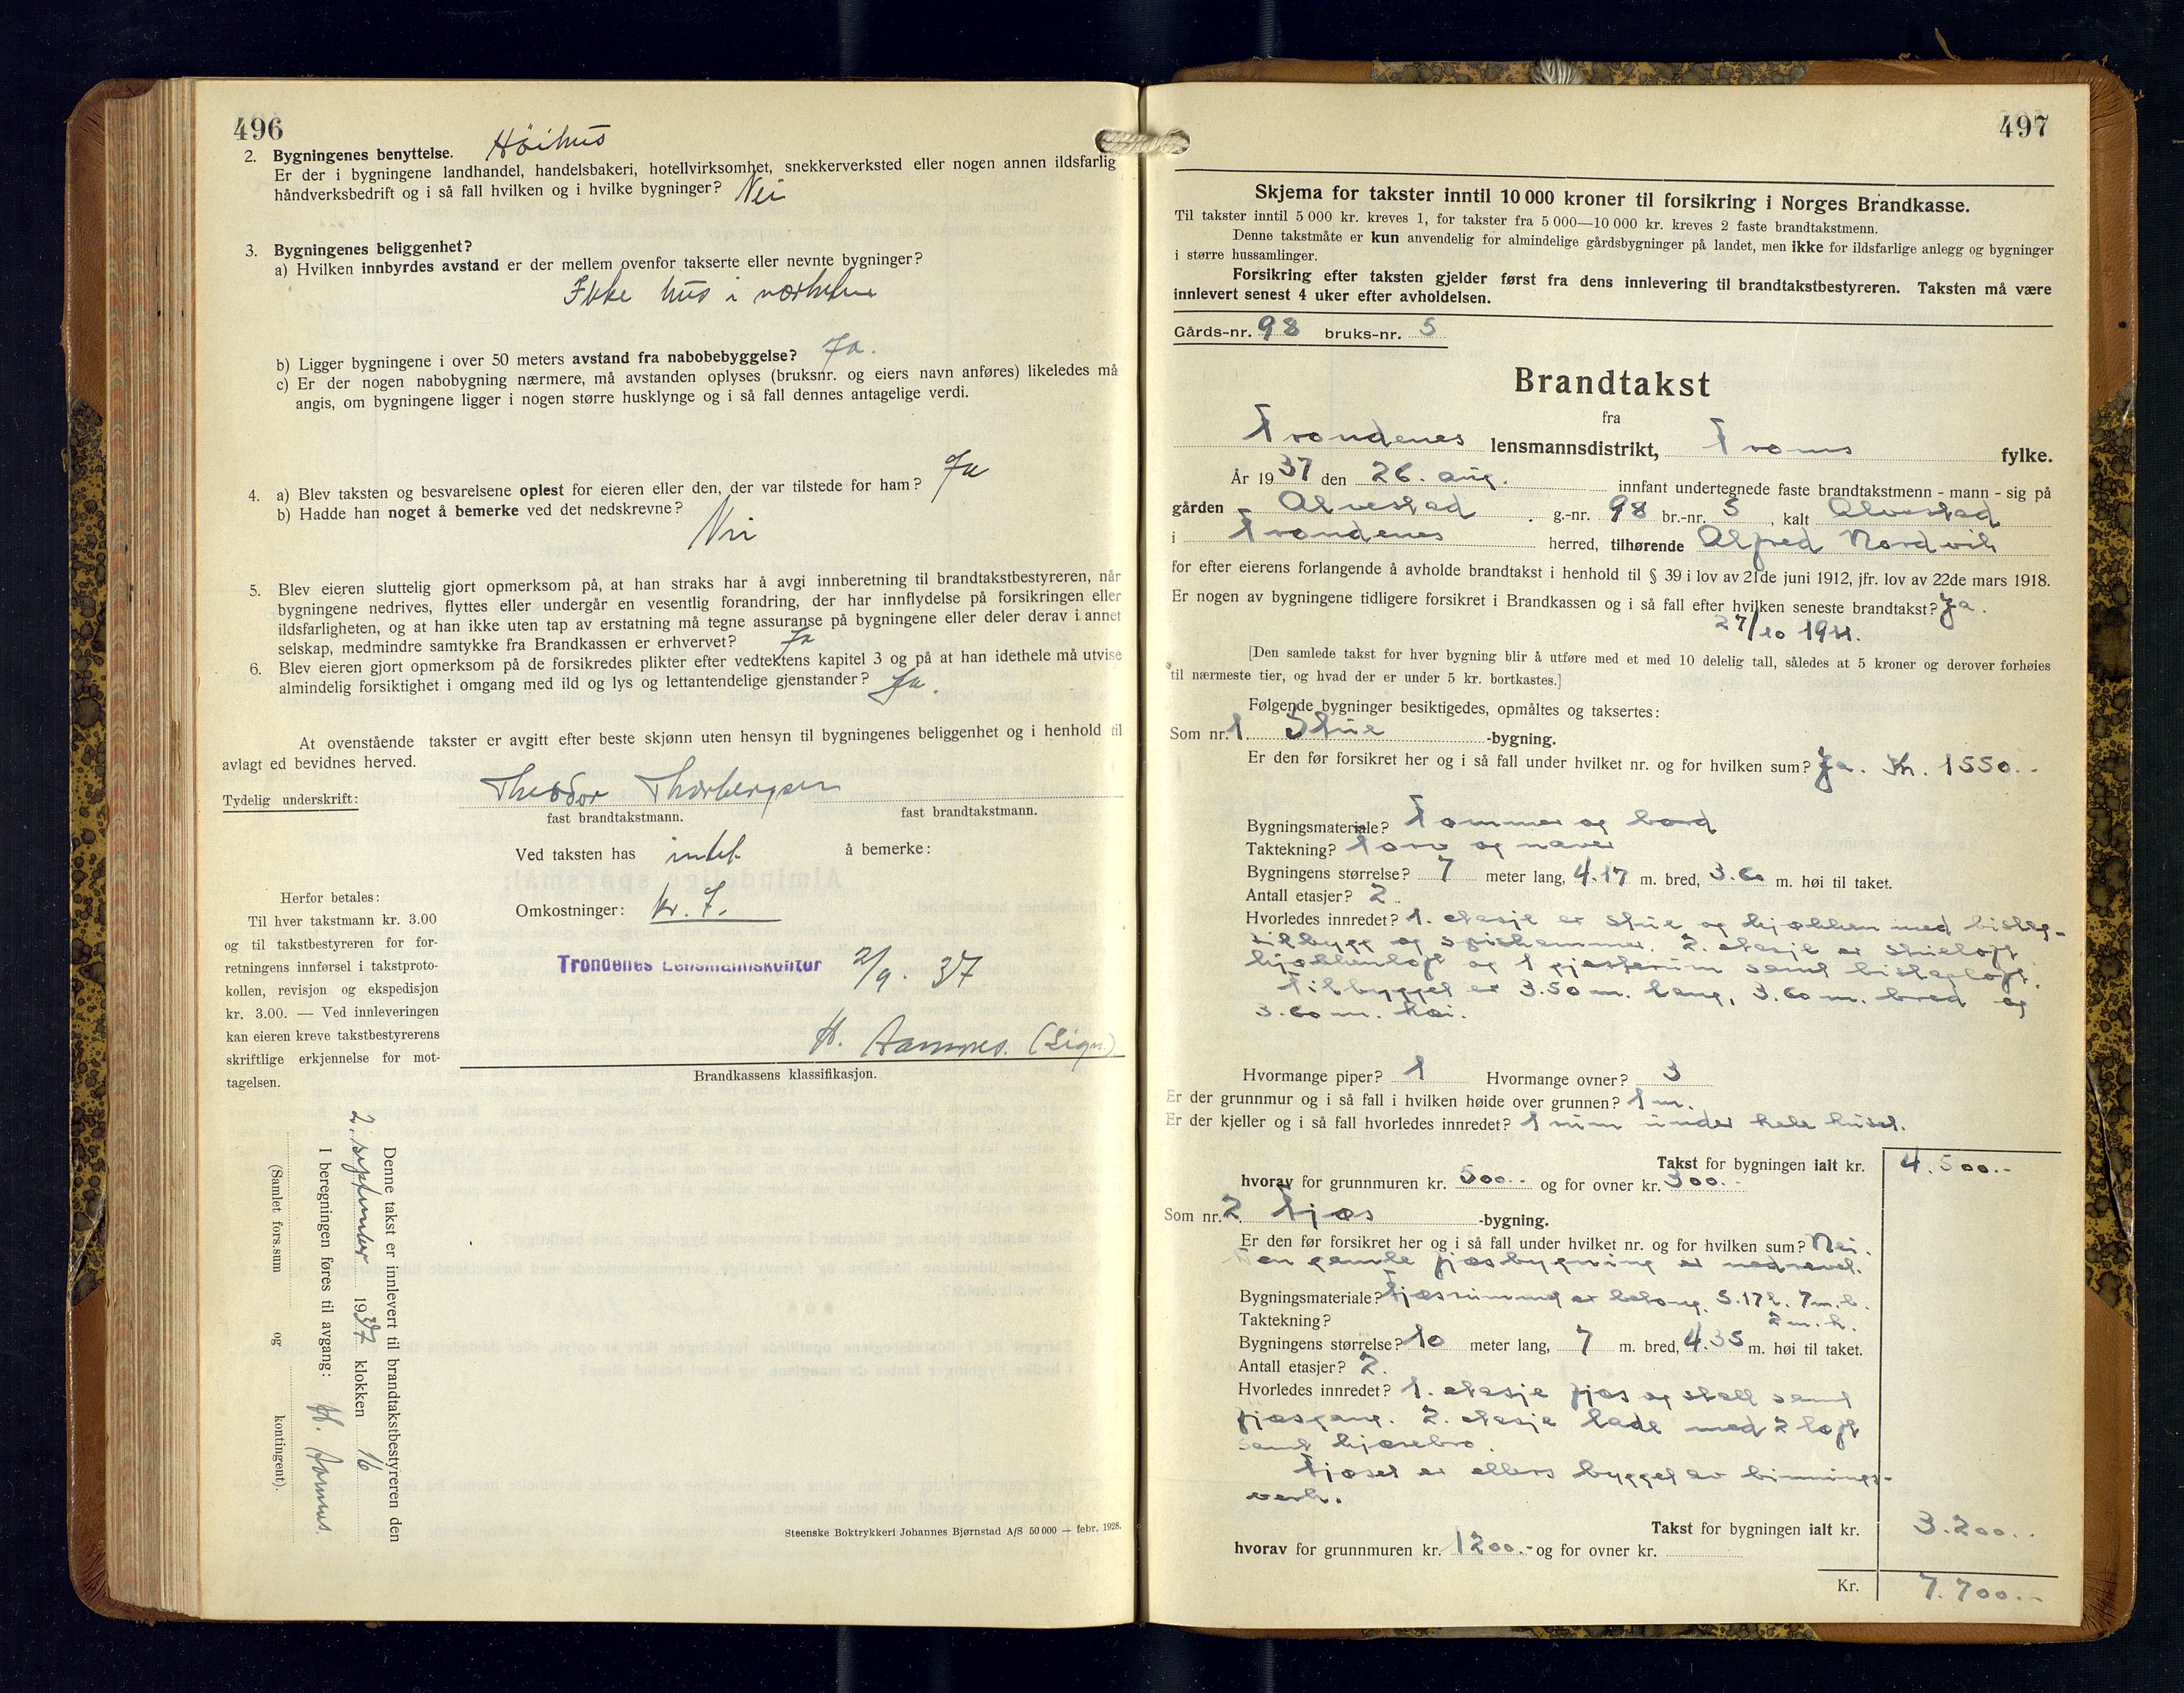 496
2. Bygningenes benyttelse. Höihus
Er der i bygningene landhandel, handelsbakeri, hotellvirksomhet, snekkerverksted eller nogen annen ildsfarlig
håndverksbedrift og i så fall hvilken og i hvilke bygninger? Nei
3. Bygningenes beliggenhet?
a) Hvilken innbyrdes avstand er der mellem ovenfor takserte eller nevnte bygninger?
Ikke hus i nærheten
b) Ligger bygningene i over 50 meters avstand fra nabobebyggelse? Ja.
c) Er der nogen nabobygning nærmere, må avstanden oplyses (bruksnr. og eiers navn anføres) likeledes må
angis, om bygningene ligger i nogen større husklynge og i så fall dennes antagelige verdi.
4. a) Blev taksten og besvarelsene oplest for eieren eller den, der var tilstede for ham? Ja
b) Hadde han noget å bemerke ved det nedskrevne?
Nei
5. Blev eieren sluttelig gjort opmerksom på, at han straks har å avgi innberetning til brandtakstbestyreren, når
bygningene nedrives, flyttes eller undergår en vesentlig forandring, der har innflydelse på forsikringen eller
ildsfarligheten, og at han ikke uten tap av erstatning må tegne assuranse på bygningene eller deler derav i annet
selskap, medmindre samtykke fra Brandkassen er erhvervet? Ja
6. Blev eieren gjort opmerksom på de forsikredes plikter efter vedtektens kapitel 3 og på at han idethele må utvise
almindelig forsiktighet i omgang med ild og lys og lettantendelige gjenstander? Ja.
At ovenstående takster er avgitt efter beste skjønn uten hensyn til bygningenes beliggenhet og i henhold til
avlagt ed bevidnes herved.
Tydelig underskrift: Theodor Thorbergsen
fast brandtakstmann. fast brandtakstmann.
Ved taksten has intet å bemerke:
Herfor betales:
Til hver takstmann kr. 3.00
og til takstbestyreren for for-
retningens innførsel i takstproto-
kollen, revisjon og ekspedisjon
kr. 3.00. — Ved innleveringen
kan eieren kreve takstbestyrerens
skriftlige erkjennelse for mot-
tagelsen.
Omkostninger: kr. 7.
Trondenes Lensmannskontor 2/9. 37
H. Aamnes. (Sign.)
Brandkassens klassifikasjon.
Denne takst er innlevert til brandtakstbestyreren den
2. september 1937 klokken 16
I beregningen føres til avgang: H. Aamnes.
(Samlet fors.sum og kontingent).
Steenske Boktrykkeri Johannes Bjørnstad A/S 50 000 — febr. 1928.
497
Skjema for takster inntil 10 000 kroner til forsikring i Norges Brandkasse.
Til takster inntil 5 000 kr. kreves 1, for takster fra 5 000—10 000 kr. kreves 2 faste brandtakstmenn.
Denne takstmåte er kun anvendelig for almindelige gårdsbygninger på landet, men ikke for ildsfarlige anlegg og bygninger
i større hussamlinger.
Forsikring efter taksten gjelder først fra dens innlevering til brandtakstbestyreren. Taksten må være
innlevert senest 4 uker efter avholdelsen.
Gårds-nr. 98 bruks-nr. 5
Brandtakst
fra
Trondenes lensmannsdistrikt, Troms fylke.
År 1937 den 26. aug. innfant undertegnede faste brandtakstmenn - mann - sig på
gården Alvestad g.-nr. 98 br.-nr. 5, kalt Alvestad
i Trondenes herred, tilhørende Alfred Nordvik
for efter eierens forlangende å avholde brandtakst i henhold til § 39 i lov av 21de juni 1912, jfr. lov av 22de mars 1918.
Er nogen av bygningene tidligere forsikret i Brandkassen og i så fall efter hvilken seneste brandtakst? Ja.
27/10
[Den samlede takst for hver bygning blir å utføre med et med 10 delelig tall, således at 5 kroner og derover forhøies
til nærmeste tier, og hvad der er under 5 kr. bortkastes.]
Følgende bygninger besiktigedes, opmåltes og taksertes:
Som nr. 1 Stue -bygning.
Er den før forsikret her og i så fall under hvilket nr. og for hvilken sum? Ja. Kr. 1550.-
Bygningsmateriale? Tømmer og bord
Taktekning? Torv og næver
Bygningens størrelse? 7 meter lang, 4.17 m. bred, 3.60 m. høi til taket.
Antall etasjer? 2.
Hvorledes innredet? 1. etasje er stue og kjøkken med bislag-
tilbygg og spiskammer. 2. etasje er stueloft
kjøkkenloft og 1 gjesterum samt bislagloft.
Tilbygget er 3.50 m. lang, 3.60 m. bred og
3.60 m. høi.
Hvormange piper? 1 Hvormange ovner? 3
Er der grunnmur og i så fall i hvilken høide over grunnen? 1 m.
Er der kjeller og i så fall hvorledes innredet? 1 rum under hele huset.
Takst for bygningen ialt kr. 4.500.-
hvorav for grunnmuren kr. 500.- og for ovner kr. 300.-
Som nr. 2 Fjøs -bygning.
Er den før forsikret her og i så fall under hvilket nr. og for hvilken sum? Nei.
Den gamle fjøsbygning er nedrevet.
Bygningsmateriale? Fjøsrummet er betong. 5.17 l. 7 m. b.
Taktekning? 2 m. h.
Bygningens størrelse? 10 meter lang, 7 m. bred, 4.35 m. høi til taket.
Antall etasjer? 2.
Hvorledes innredet? 1. etasje fjøs og stall samt
fjøsgang. 2. etasje lade med 2 loft
samt kjørebro.
Fjøset er ellers bygget av binnings-
verk.
Takst for bygningen ialt kr. 3.200.-
hvorav for grunnmuren kr. 1200.- og for ovner kr.
Kr. 7.700.-